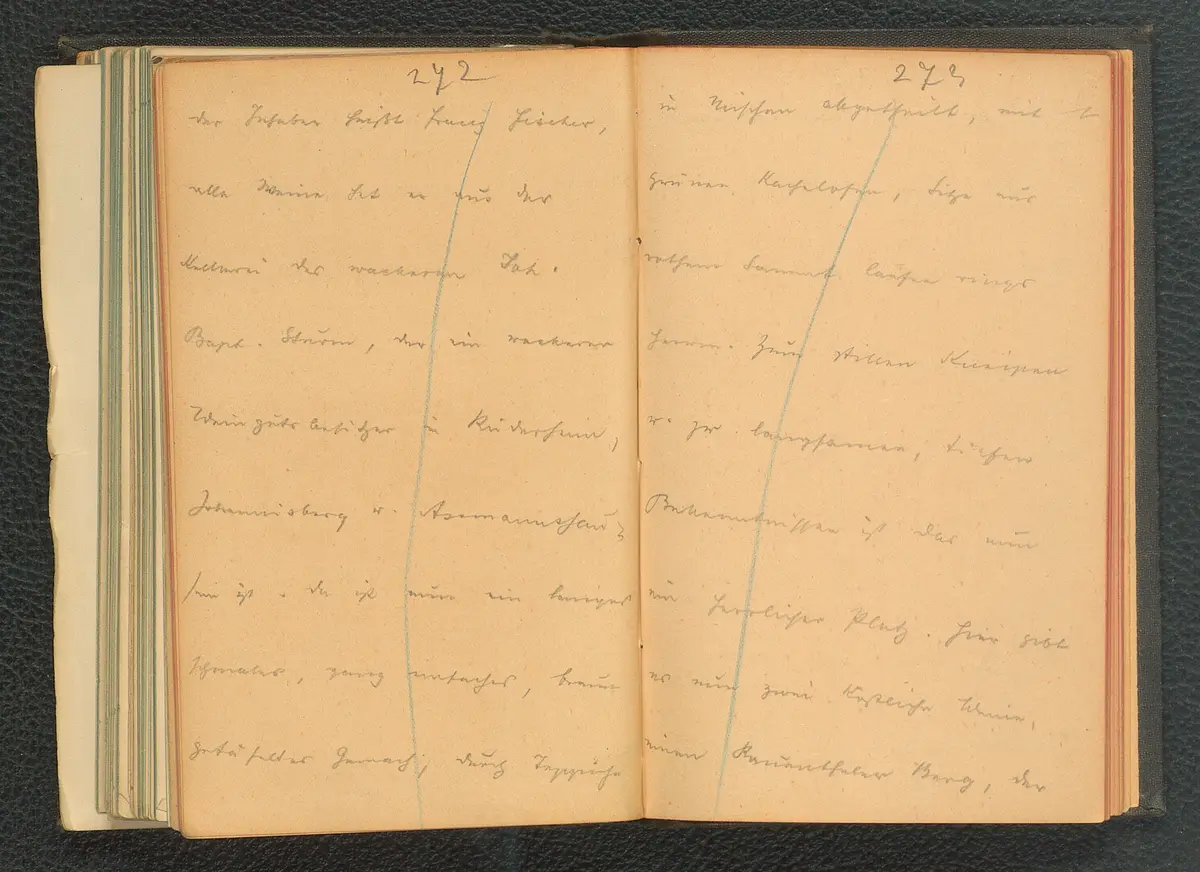 272
der Inhaber heißt Franz Fischer,
alle Weine hat er aus der
Kellerei des wackeren Joh.
Bapt. Sturm, der ein wackerer
Weingutsbesitzer in Rüdesheim,
Johannisberg u. Assmannshau-
sen ist. Da ist nun ein langes
schmales, ganz einfaches, braun
getäfeltes Gemach, durch Teppiche
273
in Nischen abgetheilt, mit
grünen Kachelofen, Sitze aus
rothem Sammt laufen rings
herum. Zum stillen Kneipen
u. zu langsamen, tiefen
Bekenntnissen ist das nun
ein herrlicher Platz. Hier gibt
es nun zwei köstliche Weine,
einen Rauenthaler Berg, der